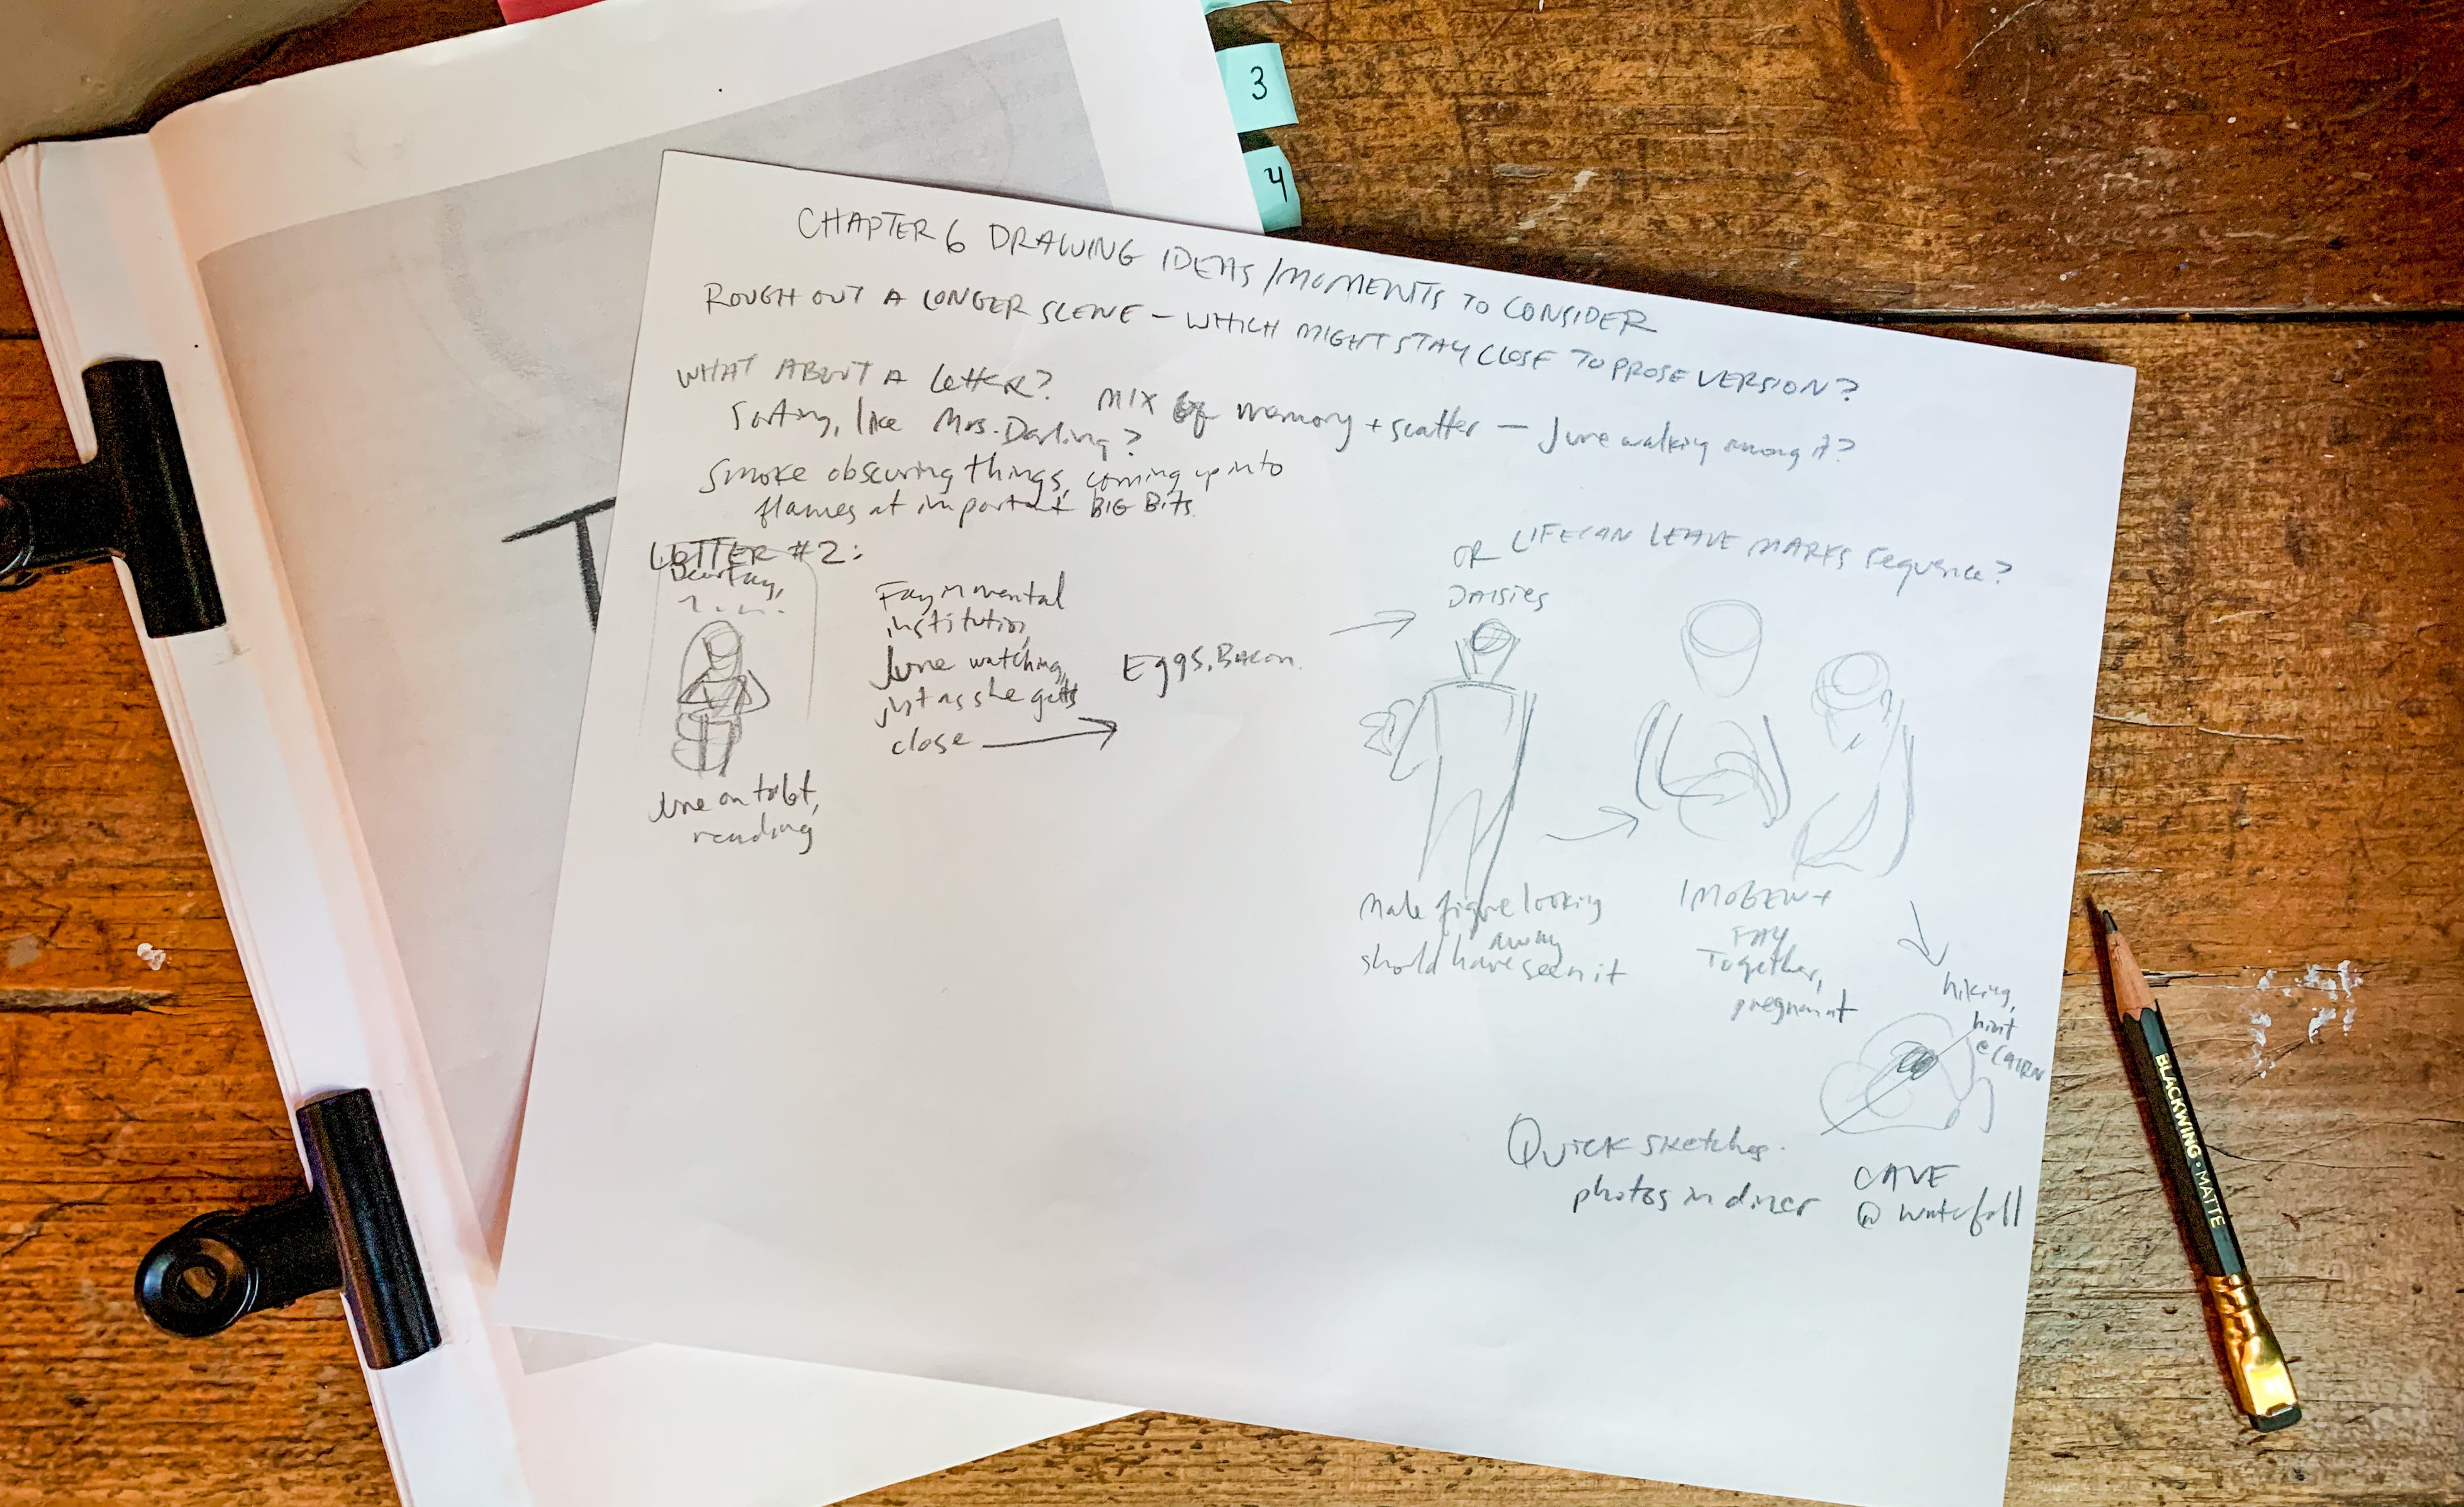 3
4
T
CHAPTER 6 DRAWING IDEAS/MOMENTS TO CONSIDER
ROUGH OUT A LONGER SCENE – WHICH MIGHT STAY CLOSE TO PROSE VERSION?
WHAT ABOUT A LETTER?
Sorting, like Mrs. Darling?
MIX of memory + scatter – June walking among it?
Smoke obscuring things, coming up into
flames at important BIG Bits.
LETTER #2:
Dear Fay,
Fay in mental
institution,
June watching,
just as she gets
close
June on toilet,
reading
Eggs, Bacon.
OR LIFE CAN LEAVE MARKS sequence?
DAISIES
Male figure looking
away
should have seen it
IMOGEN +
FAY
Together,
pregnant
hiking,
hint
@ CAIRN
Quick sketches.
photos in diner
CAVE
@ waterfall
BLACKWING • MATTE